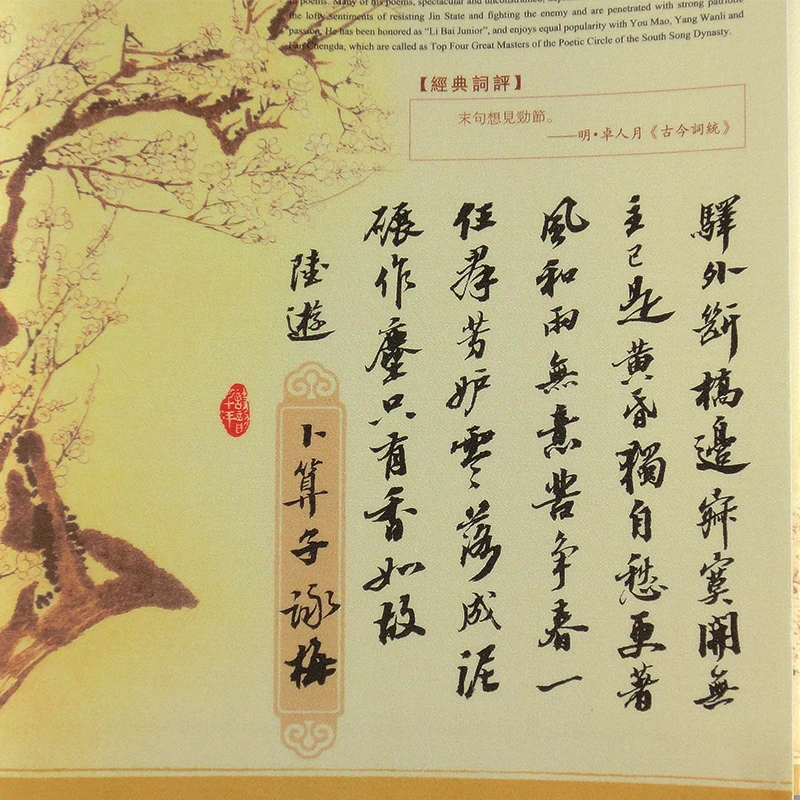 poems. Many of his poems, spectacular and unconstrained,
the lofty sentiments of resisting Jin State and fighting the enemy and are penetrated with strong patriotic
passion. He has been honored as “Li Bai Junior”, and enjoys equal popularity with You Mao, Yang Wanli and
Fan Chengda, which are called as Top Four Great Masters of the Poetic Circle of the South Song Dynasty.
【經典詞評】
末句想見勁節。
——明·卓人月《古今詞統》
驛外斷橋邊寂寞開無
主已是黃昏獨自愁更著
風和雨無意苦爭春一
任群芳妒零落成泥
碾作塵只有香如故
陸遊
卜算子詠梅